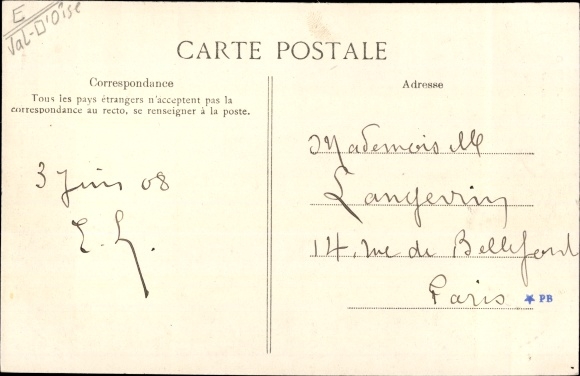 E
Val-D'Oise
CARTE POSTALE
Correspondance
Tous les pays étrangers n'acceptent pas la
correspondance au recto, se renseigner à la poste.
3 Juin 08
E. L.
Adresse
Mademoiselle
Langevin
14, rue de Bellefond
Paris
PB